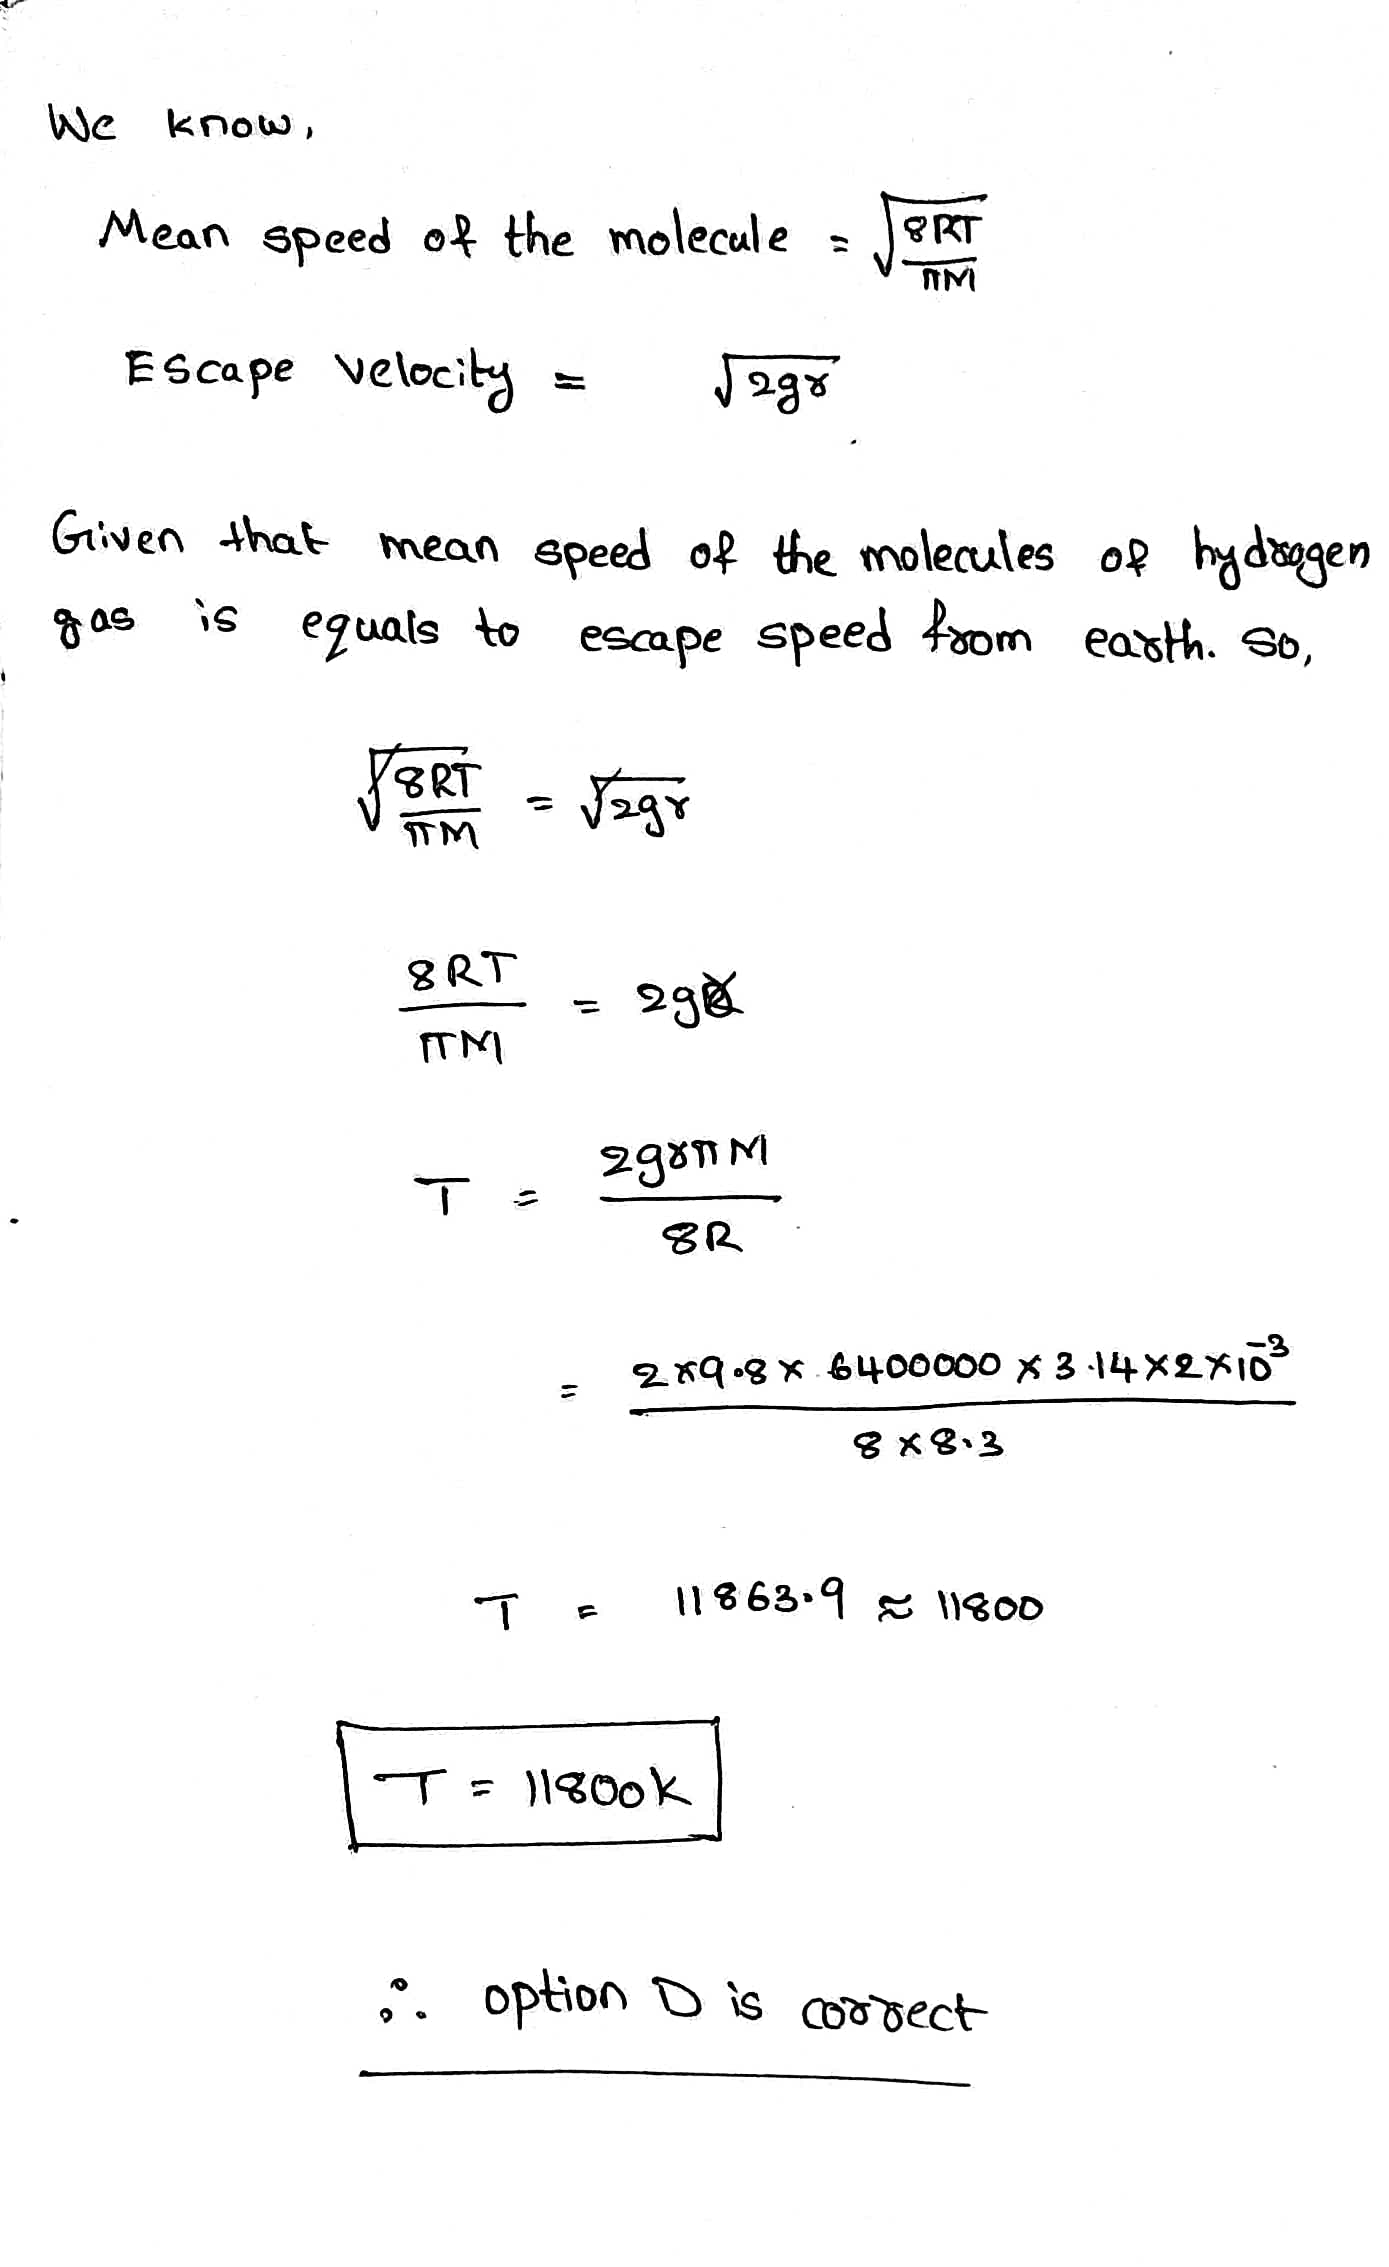 We know,
Mean speed of the molecule = √(8RT/πM)
Escape velocity = √2gr
Given that mean speed of the molecules of hydrogen
gas is equals to escape speed from earth. So,
√(8RT/πM) = √2gr
8RT/πM = 2gr
T = 2grπM/8R
= 2×9.8×6400000×3.14×2×10⁻³/8×8.3
T = 11863.9 ≈ 11800
T = 11800K
∴ option D is correct